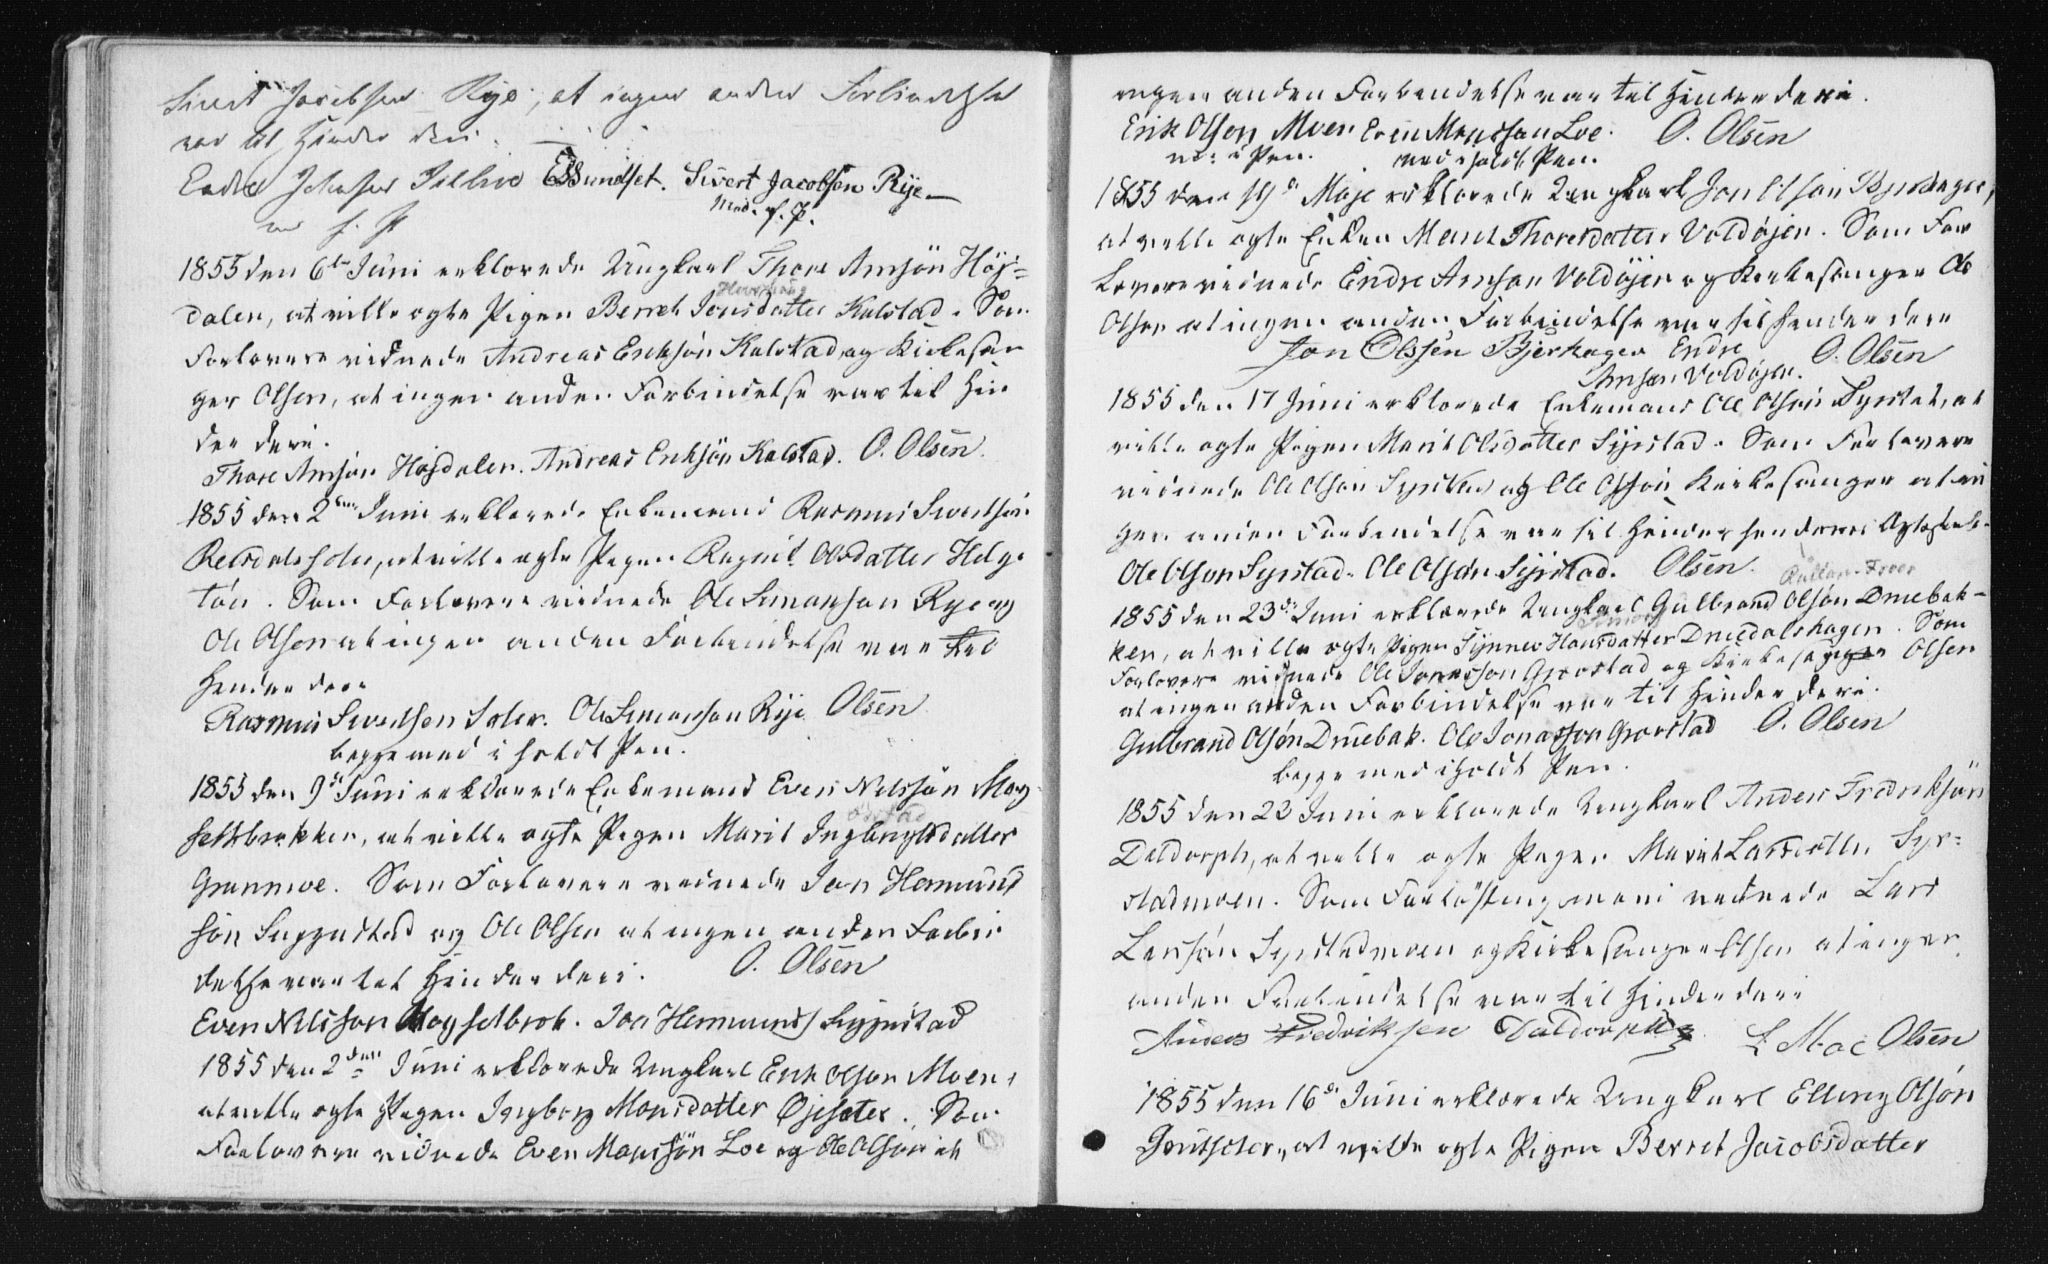 Sivert Jacobsen Rye, at ingen anden Forbindelse
var til Hinder deri.
Endre Johnsen ESSundset. Sivert Jacobsen Rije
m. f. P. Med. f. P.
1855 den 6te Juni erklærede Ungkarl Thore Arnsøn Høj-
dalen, at ville ægte Pigen Berret Jonsdatter Kalstad. Som
Forlovere vidnede Andreas Eriksøn Kalstad og Kirkesan
ger Olsen, at ingen anden Forbindelse var til Hin
der deri.
Thore Arnsøn Højdalen. Andreas Eriksøn Kalstad. O. Olsen.
1855 den 2den Juni erklærede Enkemand Rasmus Sivertsøn
Reisdalssolen, at ville ægte Pigen Ragnil Olsdatter Helge
tón. Som Forlovere vidnede Ole Simonson Rye og
Ole Olsen at ingen anden Forbindelse var til
Hinder deri
Rasmus Sivertsen Soler. Ole Simonson Rije Olsen
begge med i holdt Pen.
1855 den 9de Juni erklærede Enkemand Even Nilssøn Moy
selbrekken, at ville ægte Pigen Marit Ingbrigtsdatter
Granmoe. Som Forlovere vidnede Jon Hermund
søn Suggustad og Ole Olsen at ingen anden Forbin
delse var til Hinder deri. O. Olsen
Even Nilsson Moyselbrek. Jon Hermunds Suggustad
1855 den 2den Juni erklærede Ungkarl Erik Olson Moen,
at ville ægte Pigen Ingborg Monsdatter Øjesæter. Som
Forlovere vidnede Even Monssøn Loe og Ole Olson at
ingen anden Forbindelse var til Hinder deri.
Erik Olson Moen Even Monsson Loe. O. Olsen
m. i Pen. med i holdt Pen.
1855 den 19de Maje erklærede Ungkarl Jon Olsøn Bjerkager,
at ville ægte Enken Marit Thoresdatter Voldøjen. Som For
lovere vidnede Endre Arnson Voldøjen og Kirkesanger Ole
Olsen at ingen anden Forbindelse var til Hinder deri
Jon Olssen Bjerkagen Endre O. Olsen
Arnsøn Voldøjen.
1855 den 17 Juni erklærede Enkemand Ole Olsøn Syrstad, at
ville ægte Pigen Marit Olsdatter Syrstad. Som Forlovere
vidnede Ole Olson Syrstad og Ole Olsøn Kirkesanger at in
gen anden Forbindelse var til Hinder for deres Ægteskab.
Ole Olson Syrstad. Ole Olsøn Syrstad. Olsen.
1855 den 23de Juni erklærede Ungkarl Gulbrand Olsøn Druebak-
ken, at ville ægte Pigen Synnev Hansdatter Druedalshagen. Som
Forlovere vidnede Ole Jonasson Grovstad og Kirkesanger Olsen
at ingen anden Forbindelse var til Hinder deri.
Gulbrand Olsøn Druebak. Ole Jonasson Grovstad O. Olsen
begge med iholdt Pen.
1855 den 23 Juni erklærede Ungkarl Anders Fredriksøn
Daldorph, at ville ægte Pigen Marit Larsdatter Syr-
stadmoen. Som Forlovere vidnede Lars
Larsøn Syrstadmoen og Kirkesanger Olsen at ingen
anden Forbindelse var til Hinder deri
Anders Fredriksen Daldorph L Moe Olsen
1855 den 16de Juni erklærede Ungkarl Elling Olsøn
Grutseter, at ville ægte Pigen Berret Jacobsdatter